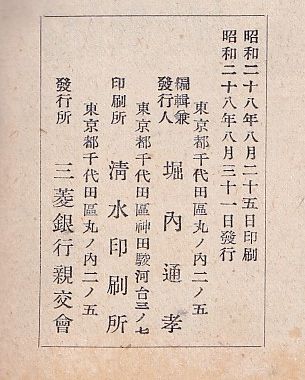 昭和二十八年八月二十五日印刷
昭和二十八年八月三十一日發行
東京都千代田區丸ノ内二ノ五
編輯兼
發行人 堀内通孝
東京都千代田區神田駿河台三ノ七
印刷所 淸水印刷所
東京都千代田區丸ノ内二ノ五
發行所 三菱銀行親交會